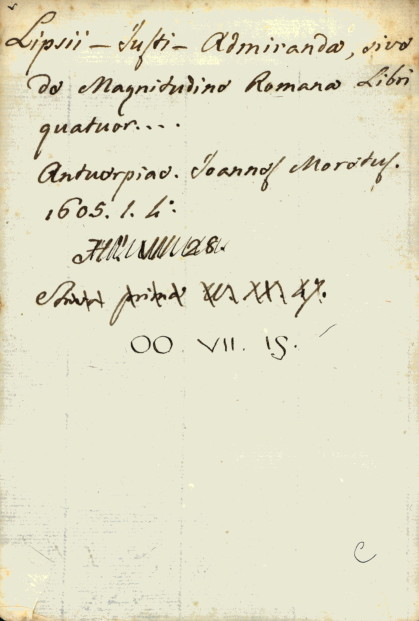 Lipsii - Justi - Admiranda, sive
de Magnitudine Romana Libri
quatuor....
Antuerpiae. Joannes Moretus.
1605. 1. 4º.
prima
OO VII. 15.
C